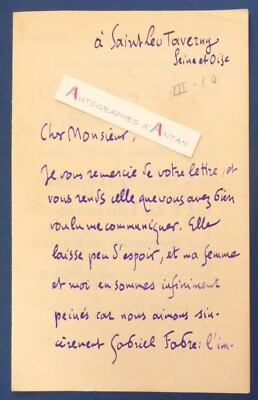 à Saint Leu Taverny
Seine et Oise
III - 10
AUTOGRAPHES d'ANTAN
Cher Monsieur,
Je vous remercie de votre lettre, et
vous rends celle que vous avez bien
voulu me communiquer. Elle
laisse peu d'espoir, et ma femme
et moi en sommes infiniment
peinés car nous aimons sin-
cèrement Gabriel Fabre : l'im-